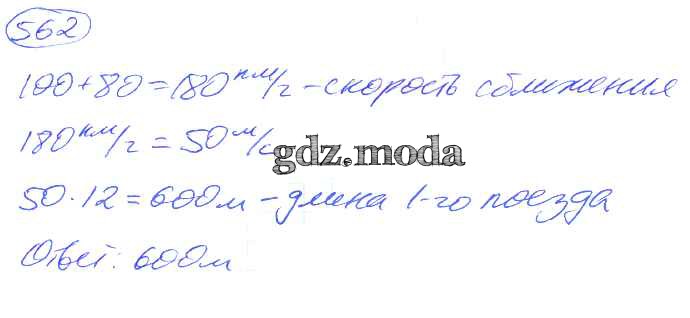 562
100+80=180 км/ч – скорость сближения
180 км/ч = 50 м/с
gdz.moda
50·12=600м – длина 1-го поезда
Ответ: 600м